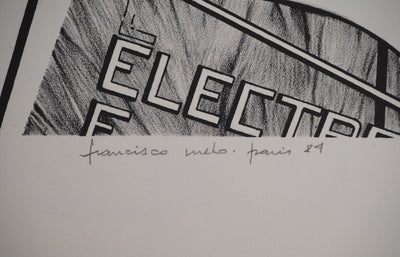 ELECTRE
F
francisco melo. paris 84